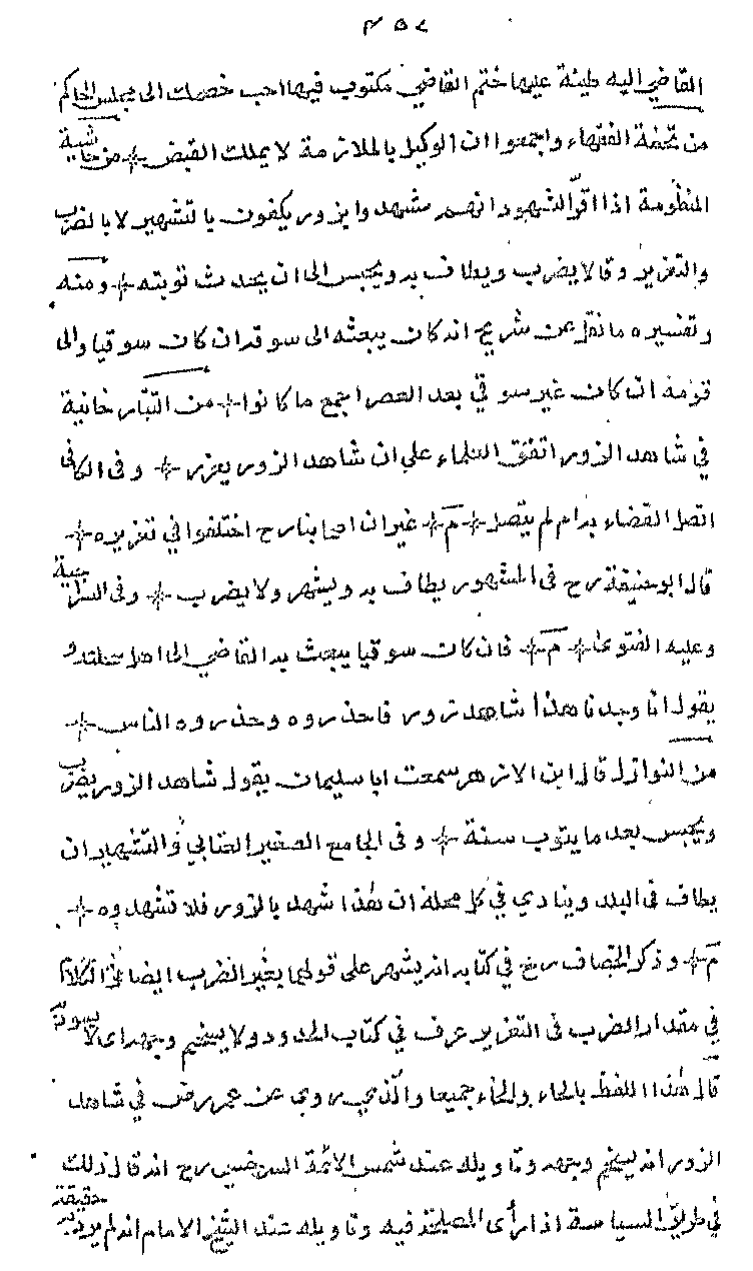 ٣٥٤
القاضي اليه طينة عليها ختم القاضي مكتوب فيها اجب خصمك الى مجلس الحاكم
من تحفة الفقهاء واجمعوا ان الوكيل بالملازمة لا يملك القبض من حاشية
المنظومة اذا اقر الشهود انهم شهدوا بزور يكفون بالتشهير لا بالضرب
والتعزير وقالا يضرب ويطاف به ويحبس الى ان يحدث توبته ومنه
وتفسيره ما نقل عن شريح انه كان يبعثه الى سوقه ان كان سوقيا والى
قومه ان كان غير سوقي بعد العصر اجمع ما كانوا من التتار خانية
في شاهد الزور اتفق العلماء على ان شاهد الزور يعزر وفى الكافى
اتصل القضاء به ام لم يتصل م غير ان اصحابنا رح اختلفوا في تعزيره
قال ابو حنيفة رح فى المشهور يطاف به ويشهر ولا يضرب وفى السراجية
وعليه الفتوى م فان كان سوقيا يبعث به القاضي الى اهل محلته و
يقول انا وجدنا هذا شاهد زور فاحذروه وحذروه الناس
من النوازل قال ابن الازهر سمعت ابا سليمان يقول شاهد الزور يضرب
ويحبس بعد ما يتوب سنة وفى الجامع الصغير العتابي والتشهير ان
يطاف فى البلد وينادي في كل محلة ان هذا شهد بالزور فلا تشهدوه
م وذكر الخصاف رح في كتابه انه يشهر على قولهما بغير الضرب ايضا الكلام
في مقدار الضرب فى التعزير عرف في كتاب الحدود ولا يسخم وجهه اى لا يسود
قال هذا اللفظ بالحاء والخاء جميعا والذي روى عن عمر رض في شاهد
الزور انه يسخم وجهه وتاويله عند شمس الائمة السرخسي رح انه قال ذلك
في طريق السياسة اذا رأى المصلحة فيه وتاويله عند الشيخ الامام انه لم يرد به حقيقة